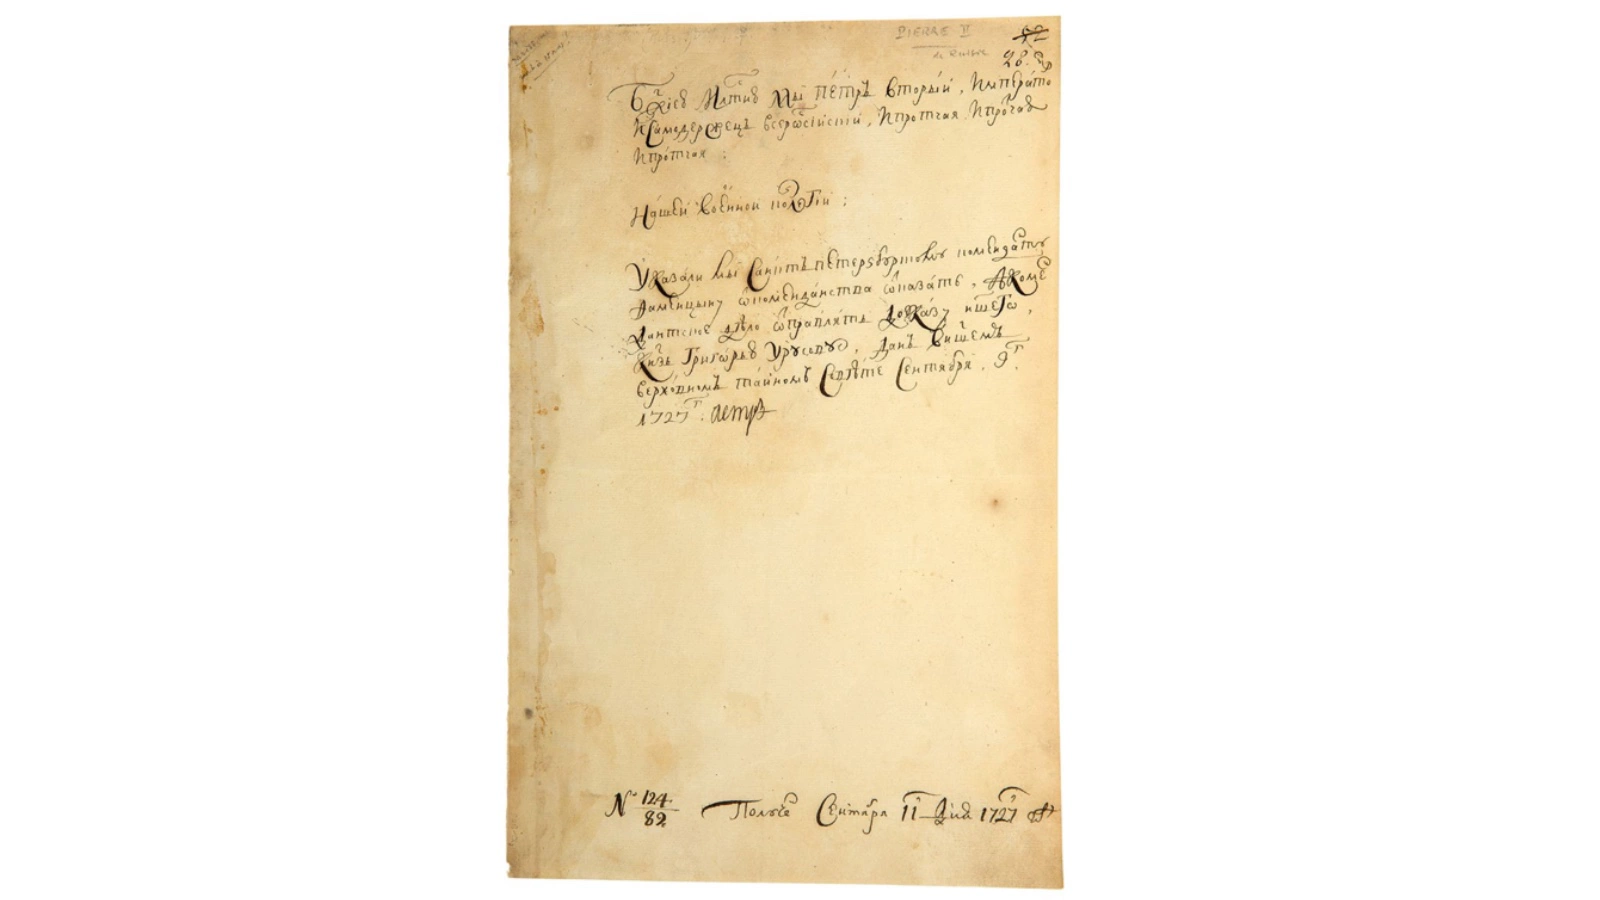 PIERRE II
de Russie
28.
Бжиею Млтию Мы Петръ Вторыи, Императо
И Самодержецъ всеросииски, И протчая И протчая
И протчая:
Нашеи военнои колегии:
Указали мы Санктъпетерзбурскому коменданту
Фаменцыну комендантства, А коме
дантское дело отправлять до указу
Кнзь Григорью Урусову, Данъ Внашемъ
верховномъ таиномъ Совѣте Сентября, 9 г
1727 г: Петръ
№ 124/82 Получе Сентября 11 дня 1727 г